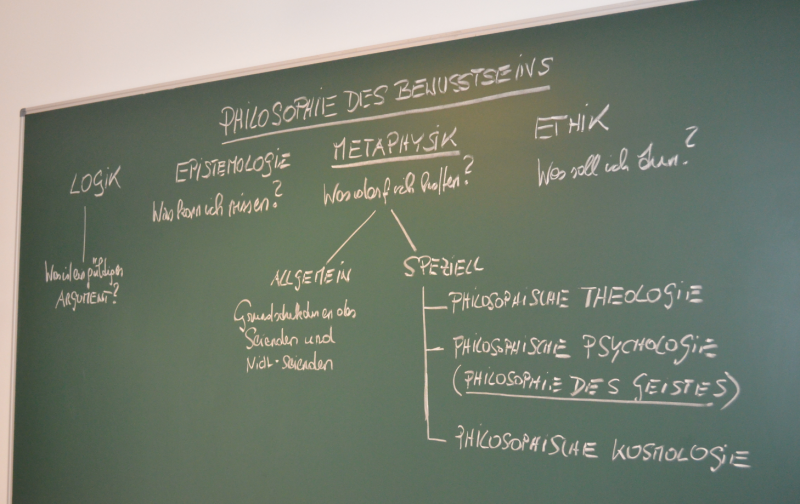 PHILOSOPHIE DES BEWUSSTSEINS
LOGIK
Was ist ein gültiges
ARGUMENT?
EPISTEMOLOGIE
Was kann ich wissen?
METAPHYSIK
Was darf ich hoffen?
ETHIK
Was soll ich tun?
ALLGEMEIN
Grundstrukturen des
Seienden und
Nicht-Seienden
SPEZIELL
PHILOSOPHISCHE THEOLOGIE
PHILOSOPHISCHE PSYCHOLOGIE
(PHILOSOPHIE DES GEISTES)
PHILOSOPHISCHE KOSMOLOGIE